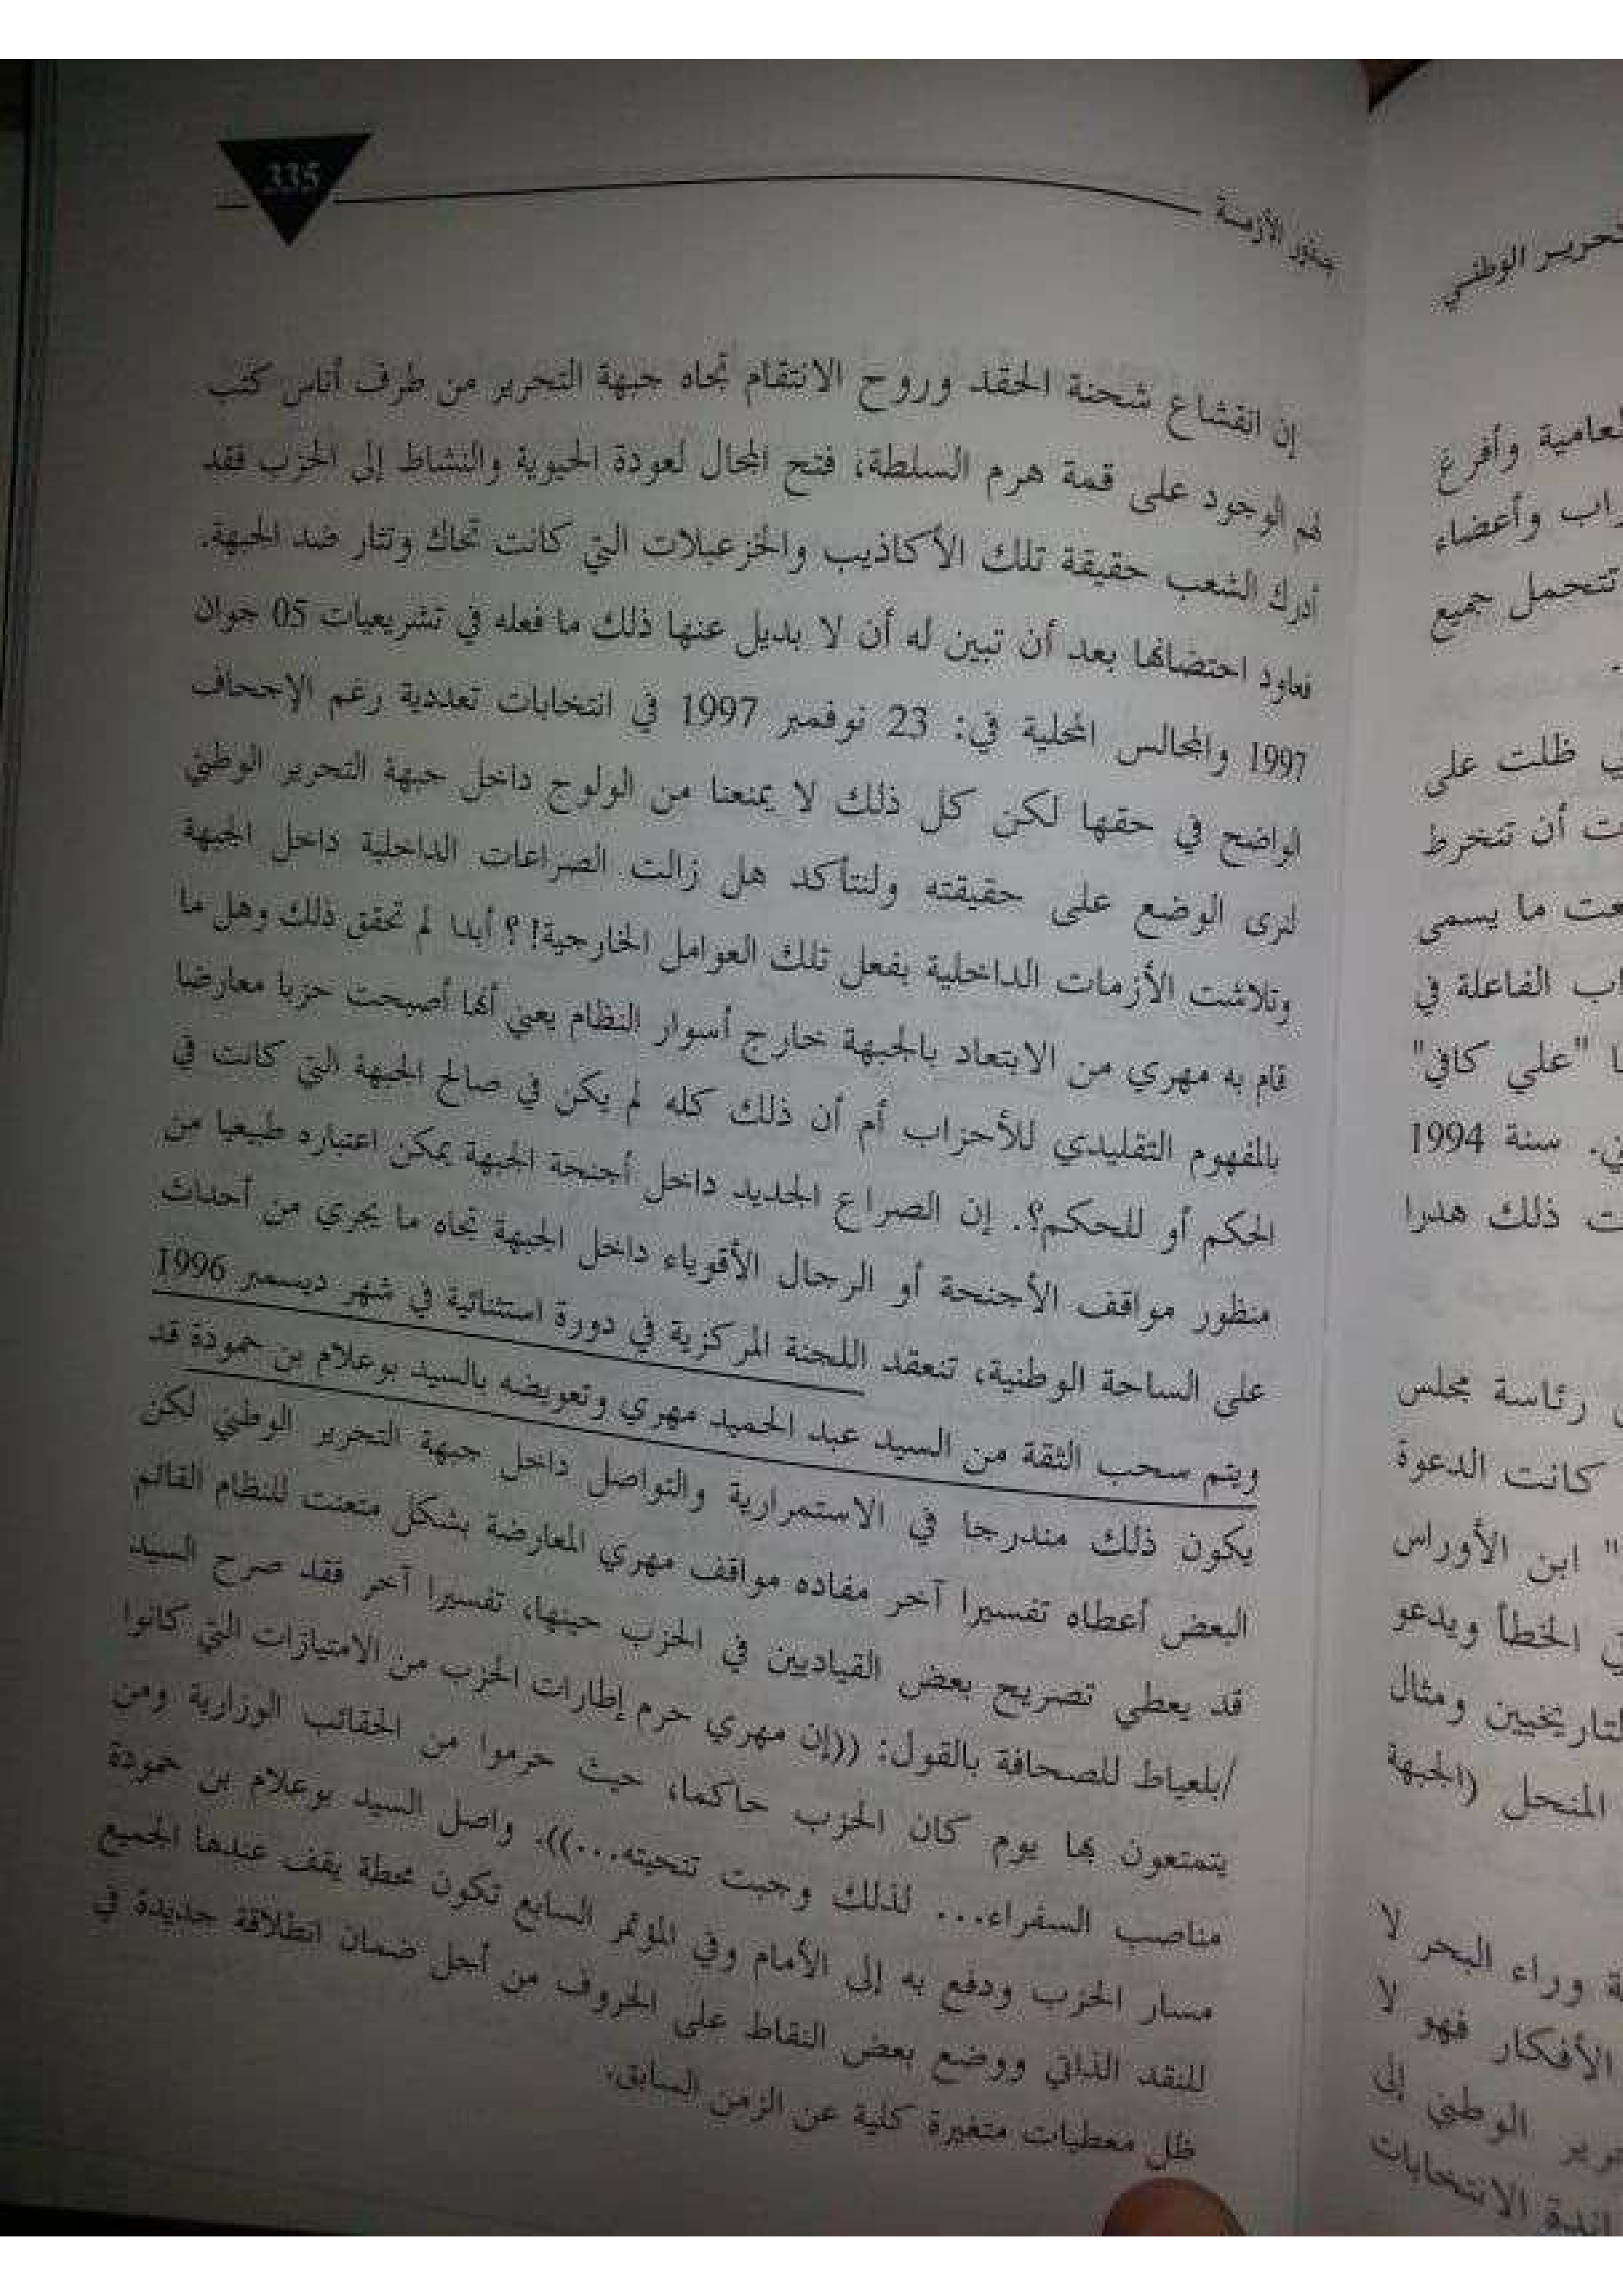 335
جذور الأزمة
إن انقشاع شحنة الحقد وروح الانتقام تجاه جبهة التحرير من طرف أناس كتب
لهم الوجود على قمة هرم السلطة، فتح المجال لعودة الحيوية والنشاط إلى الحزب فقد
أدرك الشعب حقيقة تلك الأكاذيب والخزعبلات التي كانت تحاك وتثار ضد الجبهة.
فعاود احتضانها بعد أن تبين له أن لا بديل عنها ذلك ما فعله في تشريعيات 05 جوان
1997 والمجالس المحلية في: 23 نوفمبر 1997 في انتخابات تعددية رغم الإجحاف
الواضح في حقها لكن كل ذلك لا يمنعنا من الولوج داخل جبهة التحرير الوطني
لنرى الوضع على حقيقته ولنتأكد هل زالت الصراعات الداخلية داخل الجبهة
وتلاشت الأزمات الداخلية بفعل تلك العوامل الخارجية!؟ أبدا لم تحقق ذلك وهل ما
قام به مهري من الابتعاد بالجبهة خارج أسوار النظام يعني أنها أصبحت حزبا معارضا
بالمفهوم التقليدي للأحزاب أم أن ذلك كله لم يكن في صالح الجبهة التي كانت في
الحكم أو للحكم؟. إن الصراع الجديد داخل أجنحة الجبهة يمكن اعتباره طبيعيا من
منظور مواقف الأجنحة أو الرجال الأقوياء داخل الجبهة تجاه ما يجري من أحداث
على الساحة الوطنية، تنعقد اللجنة المركزية في دورة استثنائية في شهر ديسمبر 1996
ويتم سحب الثقة من السيد عبد الحميد مهري وتعويضه بالسيد بوعلام بن حمودة قد
يكون ذلك مندرجا في الاستمرارية والتواصل داخل جبهة التحرير الوطني لكن
البعض أعطاه تفسيرا آخر مفاده مواقف مهري المعارضة بشكل متعنت للنظام القائم
قد يعطي تصريح بعض القياديين في الحزب حينها، تفسيرا آخر فقد صرح السيد
/بلعياط للصحافة بالقول: ((إن مهري حرم إطارات الحزب من الامتيازات التي كانوا
يتمتعون بها يوم كان الحزب حاكما، حيث حرموا من الحقائب الوزارية ومن
مناصب السفراء... لذلك وجبت تنحيته...)). واصل السيد بوعلام بن حمودة
مسار الحزب ودفع به إلى الأمام وفي المؤتمر السابع تكون محطة يقف عندها الجميع
للنقد الذاتي ووضع بعض النقاط على الحروف من أجل ضمان انطلاقة جديدة في
ظل معطيات متغيرة كلية عن الزمن السابق.
تحرير الوطني
وأفرغ
وأعضاء
تتحمل جميع
ظلت على
أن تنخرط
ما يسمى
الفاعلة في
"علي كافي"
سنة 1994
ذلك هدرا
رئاسة مجلس
كانت الدعوة
" ابن الأوراس
الخطأ ويدعو
ومثال
المنحل (الجبهة
وراء البحر لا
الأفكار فهو لا
الوطني إلى
الانتخابات